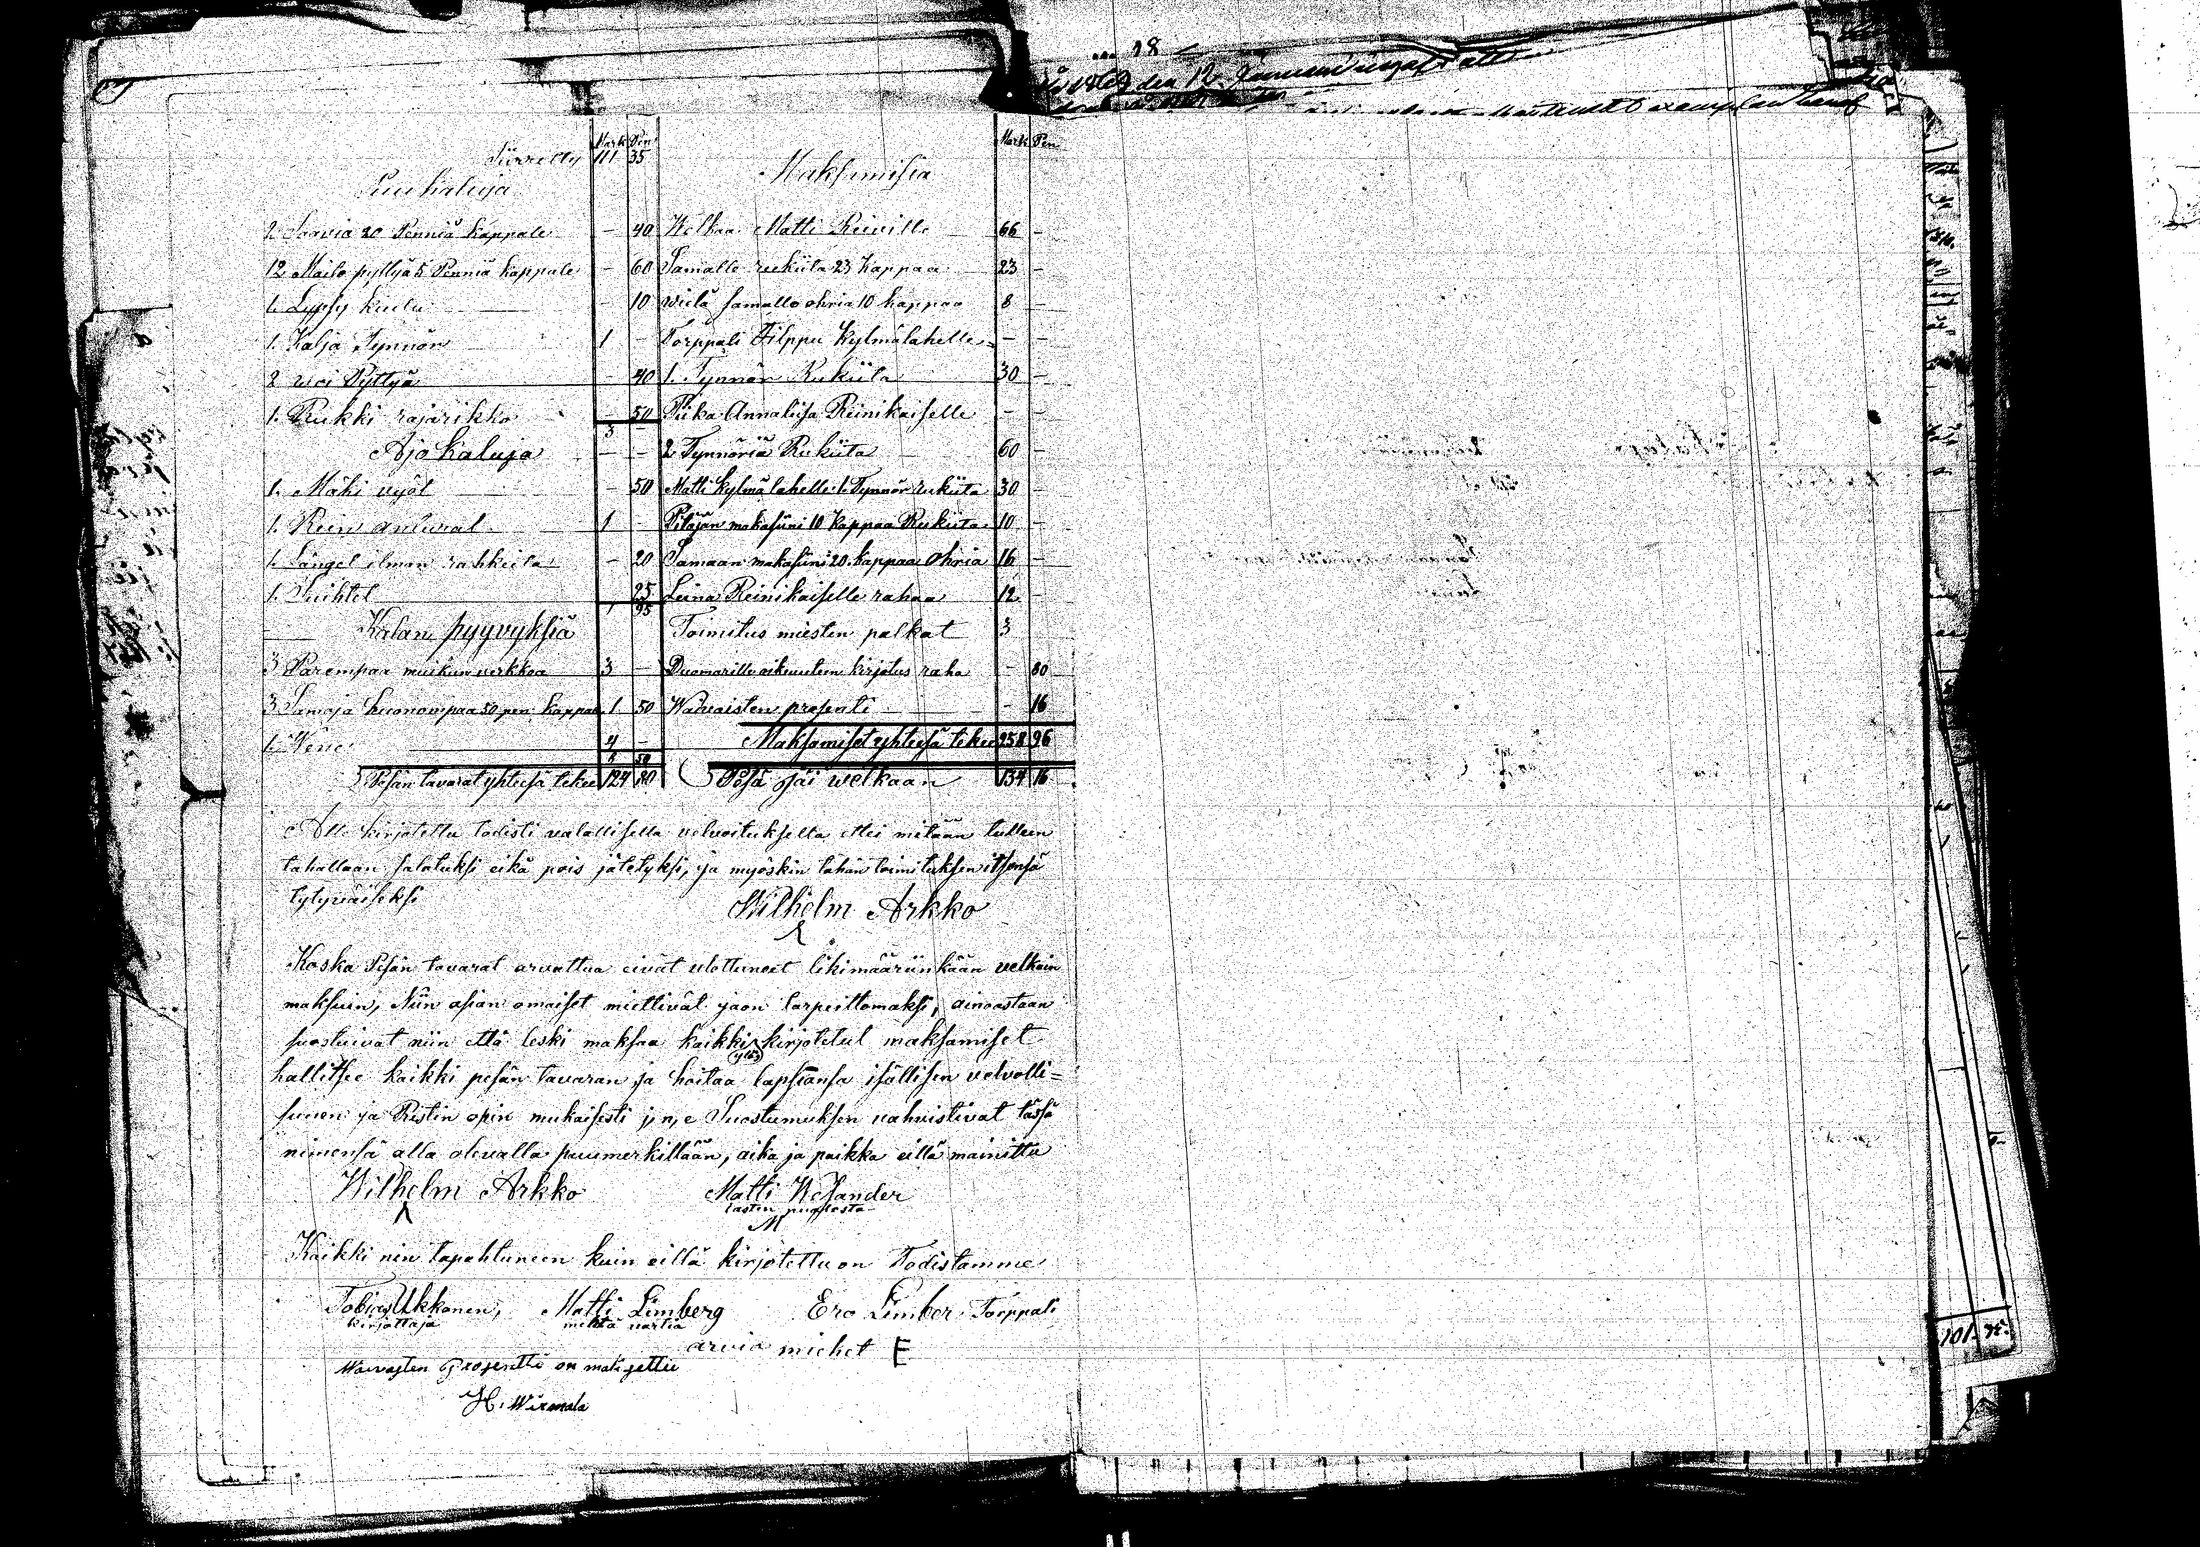 Mark Pen
Siirretty 111 35
Puu kaluja
2 Saavia 20 Penniä kappale - 40
12 Maito pyttyä 5 Penniä kappale - 60
1. Lypsy kiulu - 10
1. Kalja Tynnör 1 -
2 voi Pyttyä - 40
1. Rukki rajarikko - 50
3 -
Ajo kaluja - -
1. Mäki vyöt - 50
1. Reen 1 -
1. Länget ilman rahkeita - 20
1. Suihtet 25
1 95
Kalan pyyvyksiä
3 Parempaa muikun verkkoa 3 -
3 Samoja huonompaa 50 pen kappale 1 50
1. Vene 4 -
50
Pesän tavarat yhteesä tekee 124 80
Mark Pen
Maksamisia
Welkaa Matti 66 -
Samalle rukiita 23 kappaa 23 -
wielä samalle ohria 10 kappaa 8 -
Torppali Filppu Kylmälahelle - -
1. Tynnör Rukiita 30 -
Piika Annaliisa Reinikaiselle - -
2 Tynnöriä Rukiita 60 -
Matti Kylmälahelle 1. Tynnör rukiita 30 -
Pitäjän makasiini 10 kappaa Rukiita 10 -
Samaan makasiini 20. kappaa Ohria 16 -
Leena Reinikaiselle rahaa 12 -
Toimitus miesten palkat 3
Duomarille oikeuteen kirjotus raha - 80
Waivaisten prosenti - 16
Maksamiset yhteesä tekee 258 96
Pesä jäi welkaan 134 16
Alle kirjotettu todisti valallisella velvoituksella ettei mitään tulleen
tahallaan salatuksi eikä pois jätetyksi, ja myöskin tähän toimituksen itsensä
tytyväiseksi
Wilhelm Arkko
Koska Pesän tavarat arvattua eivät ulottuneet likimääriinkään velkain
maksuin, Niin asian omaiset miettivät jaon tarpeittomaksi, ainoastaan
suostuivat niin että leski maksaa kaikki ylös kirjotetut maksamiset
hallitsee kaikki pesän tavaran ja hoitaa lapsiansa isällisen velvolli=
suuen ja Ristin opin mukaisesti j, n, e Suostumuksen vahvistivat tässä
nimensä alla olevalla puumerkillään, aika ja paikka eillä mainittu
Wilhelm Arkko Matti Welander
lasten puolesta
M
Kaikki nin tapahtuneen kuin eillä kirjotettu on Todistamme
Tobias Ukkonen, Matti Limberg Ero Limber Torppali
kirjottaja mehtä vartia
arvio miehet E
Waivasten Prosentti on maksettu
H. Wirmala
18
den 12 Januari
exemplar
101